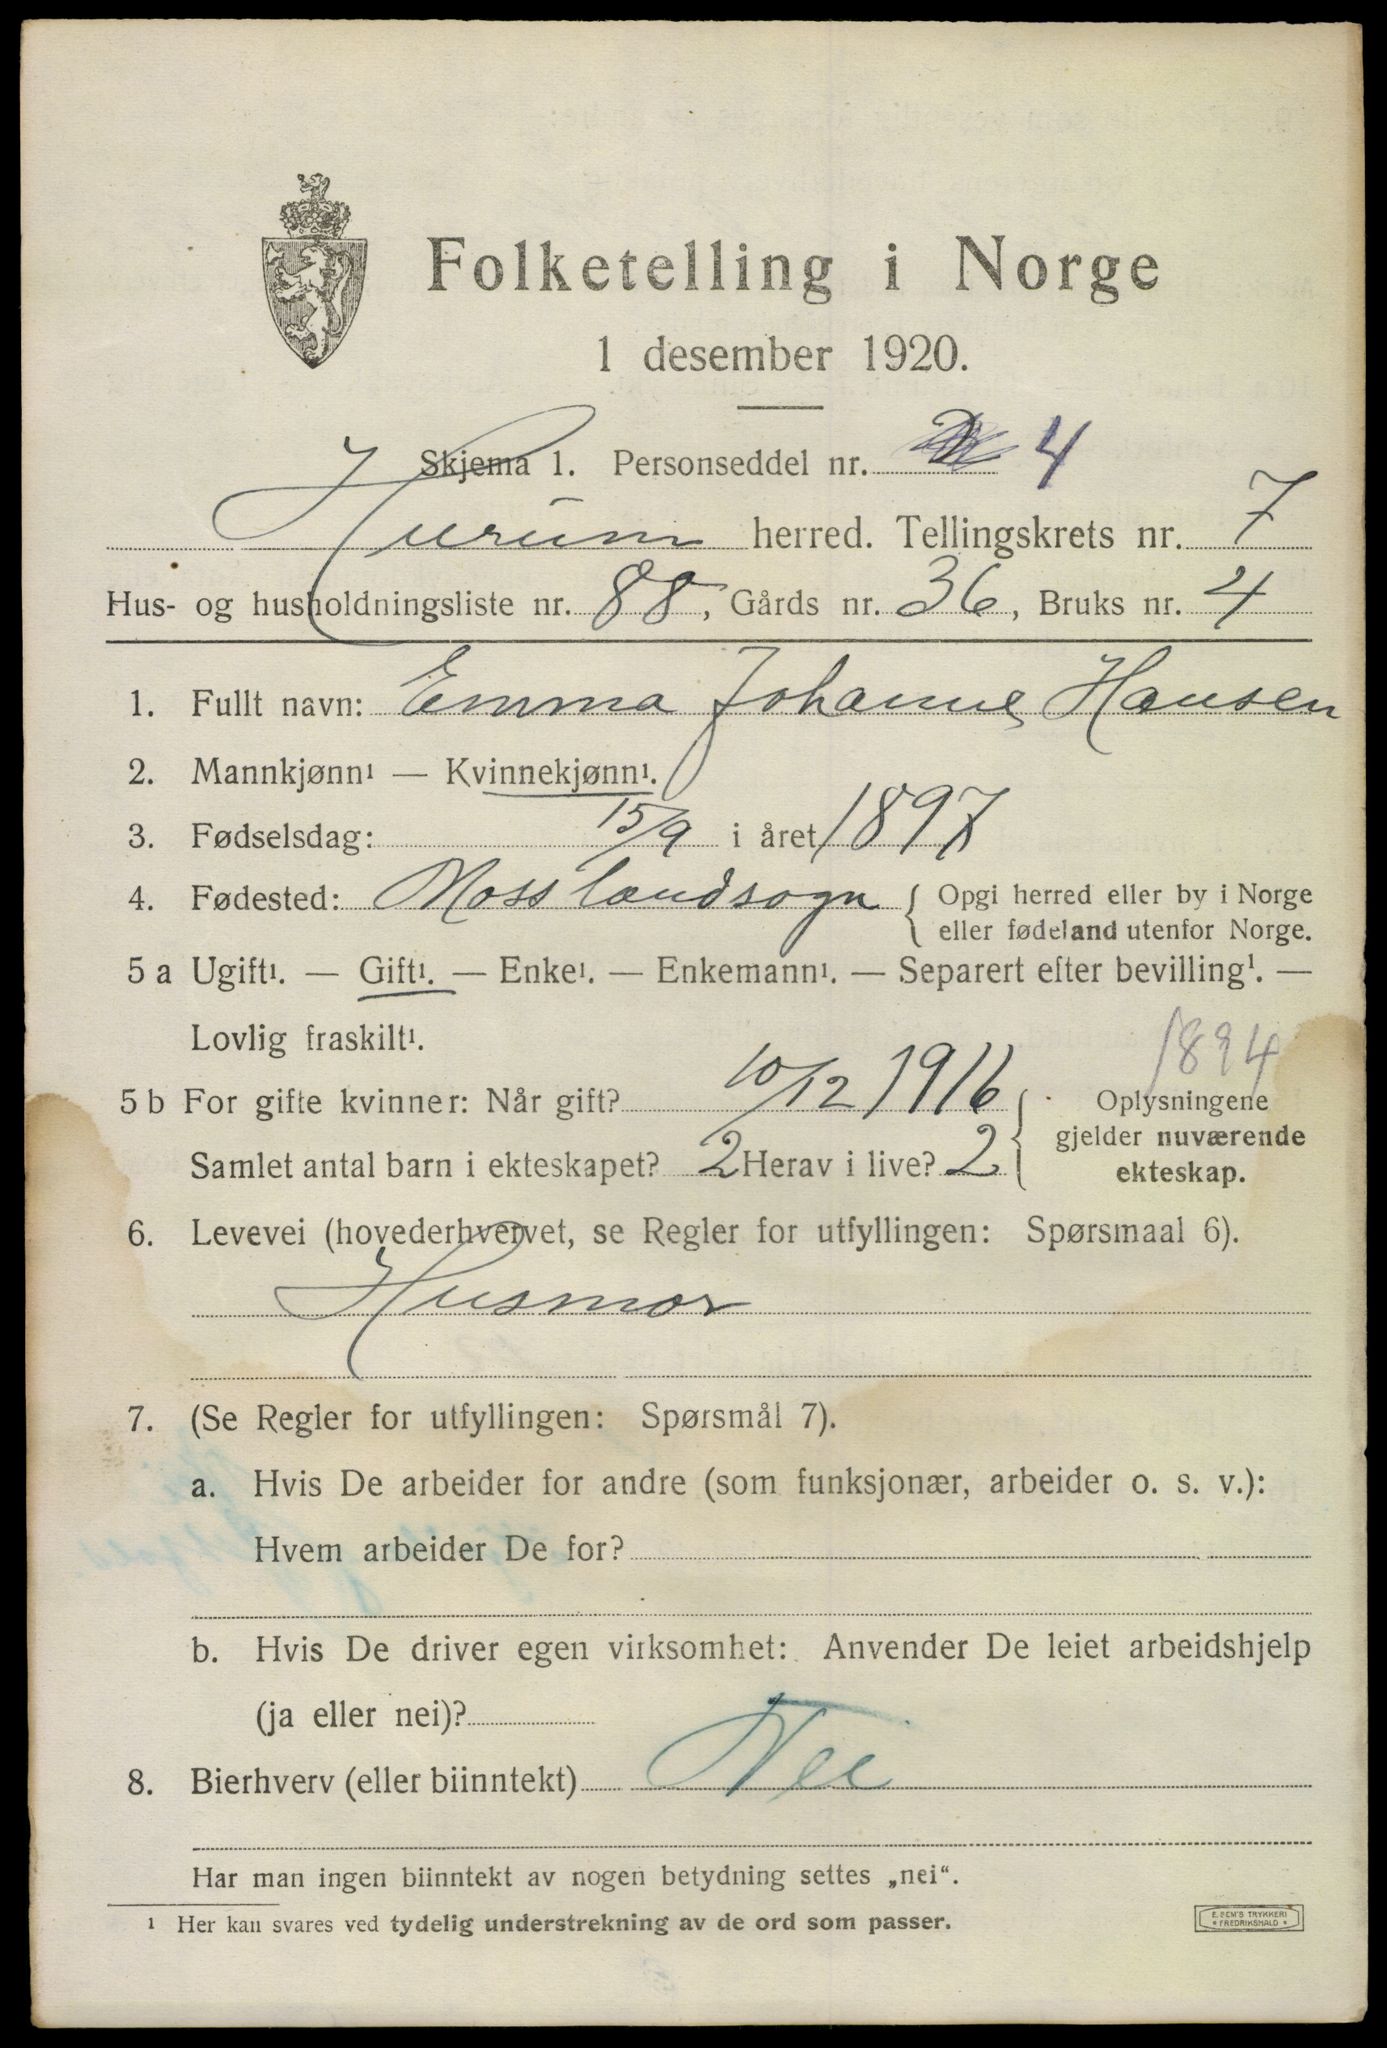 Folketelling i Norge
1 desember 1920.
Skjema 1. Personseddel nr. 4
Hurum herred. Tellingskrets nr. 7
Hus- og husholdningsliste nr. 88, Gårds nr. 36, Bruks nr. 4
1. Fullt navn: Emma Johanne Hansen
2. Mannkjønn¹ — Kvinnekjønn¹.
3. Fødselsdag: 15/9 i året 1897
4. Fødested: Moss landsogn { Opgi herred eller by i Norge
eller fødeland utenfor Norge.
5 a Ugift¹. — Gift¹. — Enke¹. — Enkemann¹. — Separert efter bevilling¹. —
Lovlig fraskilt¹.
1894
5 b For gifte kvinner: Når gift? 10/12 1916 { Oplysningene
gjelder nuværende
Samlet antal barn i ekteskapet? 2 Herav i live? 2
ekteskap.
6. Levevei (hovederhvervet, se Regler for utfyllingen: Spørsmaal 6).
Husmor
7. (Se Regler for utfyllingen: Spørsmål 7).
a. Hvis De arbeider for andre (som funksjonær, arbeider o. s. v.):
Hvem arbeider De for?
b. Hvis De driver egen virksomhet: Anvender De leiet arbeidshjelp
(ja eller nei)?
8. Bierhverv (eller biinntekt) Nei
Har man ingen biinntekt av nogen betydning settes „nei“.
¹ Her kan svares ved tydelig understrekning av de ord som passer.
E. SEM'S TRYKKERI
FREDRIKSHALD